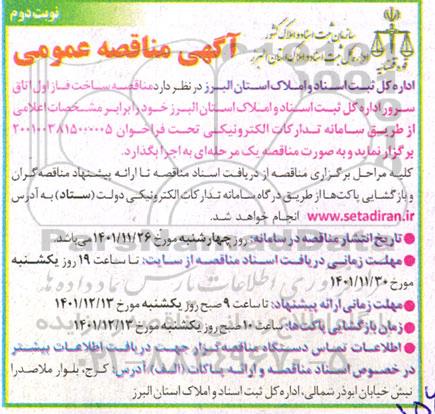 نوبت دوم
سازمان ثبت اسناد و املاک کشور
اداره کل ثبت اسناد و املاک استان البرز
قوه قضاییه
آگهی مناقصه عمومی
اداره کل ثبت اسناد و املاک استان البرز در نظر دارد مناقصه ساخت فاز اول اتاق
سرور اداره کل ثبت اسناد و املاک استان البرز خود را برابر مشخصات اعلامی
از طریق سامانه تدارکات الکترونیکی تحت فراخوان ۲۰۰۱۰۰۳۸۱۵۰۰۰۰۰۵
برگزار نماید و به صورت مناقصه یک مرحله‌ای به اجرا بگذارد.
کلیه مراحل برگزاری مناقصه از دریافت اسناد مناقصه تا ارائه پیشنهاد مناقصه گران
و بازگشایی پاکت‌ها از طریق درگاه سامانه تدارکات الکترونیکی دولت (ستاد) به آدرس
www.setadiran.ir انجام خواهد شد.
● تاریخ انتشار مناقصه در سامانه: روز چهارشنبه مورخ ۱۴۰۱/۱۱/۲۶ می‌باشد.
● مهلت زمانی دریافت اسناد مناقصه از سایت: تا ساعت ۱۹ روز یکشنبه
مورخ ۱۴۰۱/۱۱/۳۰
● مهلت زمانی ارائه پیشنهاد: تا ساعت ۹ صبح روز یکشنبه مورخ ۱۴۰۱/۱۲/۱۳
● زمان بازگشایی پاکت‌ها: ساعت ۱۰ صبح روز یکشنبه مورخ ۱۴۰۱/۱۲/۱۳
● اطلاعات تماس دستگاه مناقصه گزار جهت دریافت اطلاعات بیشتر
در خصوص اسناد مناقصه و ارائه پاکات (الف) آدرس: کرج، بلوار ملاصدرا
نبش خیابان ابوذر شمالی، اداره کل ثبت اسناد و املاک استان البرز